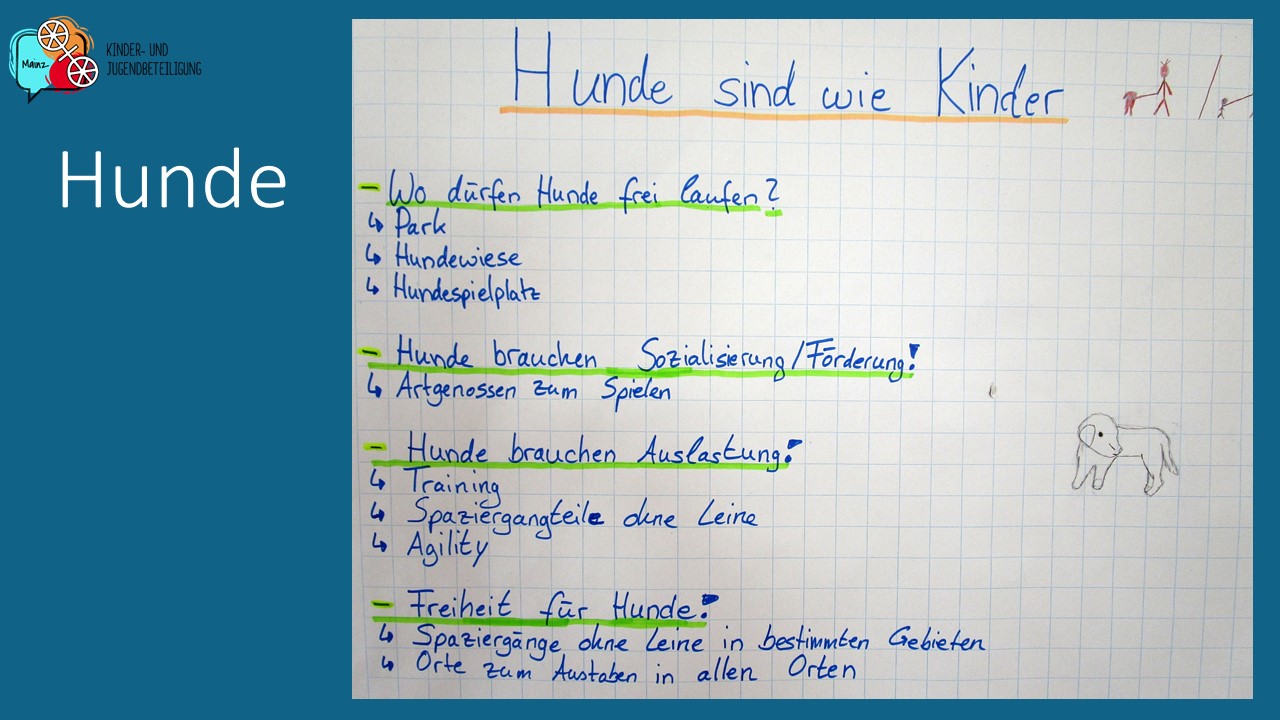 Mainz
KINDER- UND
JUGENDBETEILIGUNG
Hunde
Hunde sind wie Kinder
- Wo dürfen Hunde frei laufen?
↳ Park
↳ Hundewiese
↳ Hundespielplatz
- Hunde brauchen Sozialisierung/Förderung!
↳ Artgenossen zum Spielen
- Hunde brauchen Auslastung!
↳ Training
↳ Spaziergangteile ohne Leine
↳ Agility
- Freiheit für Hunde!
↳ Spaziergänge ohne Leine in bestimmten Gebieten
↳ Orte zum Austoben in allen Orten